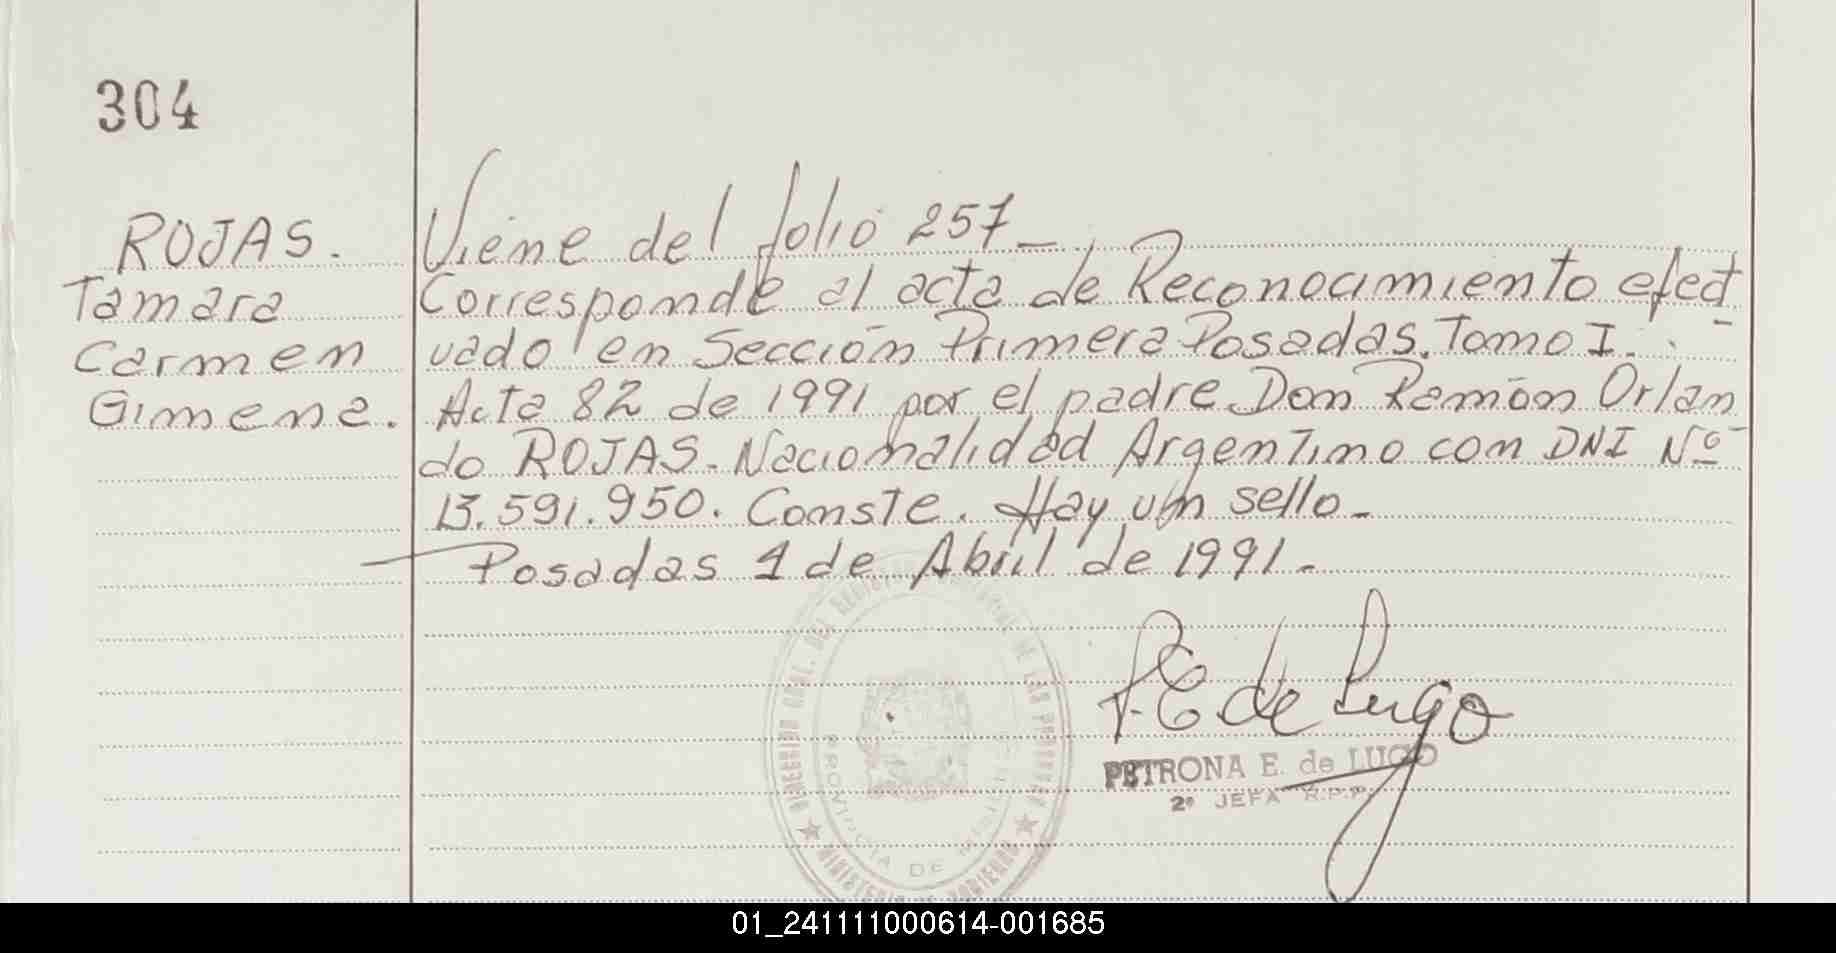 304
ROJAS.
Tamara
Carmen
Gimena.
Viene del folio 257_
Corresponde al acta de Reconocimiento efect
uado en Sección Primera Posadas. Tomo I.
Acta 82 de 1991 por el padre Don Ramón Orlan
do ROJAS. Nacionalidad Argentino con DNI Nº
13.591.950. Conste. Hay un sello.
Posadas 1 de Abril de 1991.
P. E de Lugo
PETRONA E. de LUGO
2º JEFA R.P.P.
DIRECCION GRAL. DEL REGISTRO DE LAS PERSONAS
PROVINCIA DE MISIONES
MINISTERIO DE GOBIERNO
01_241111000614-001685